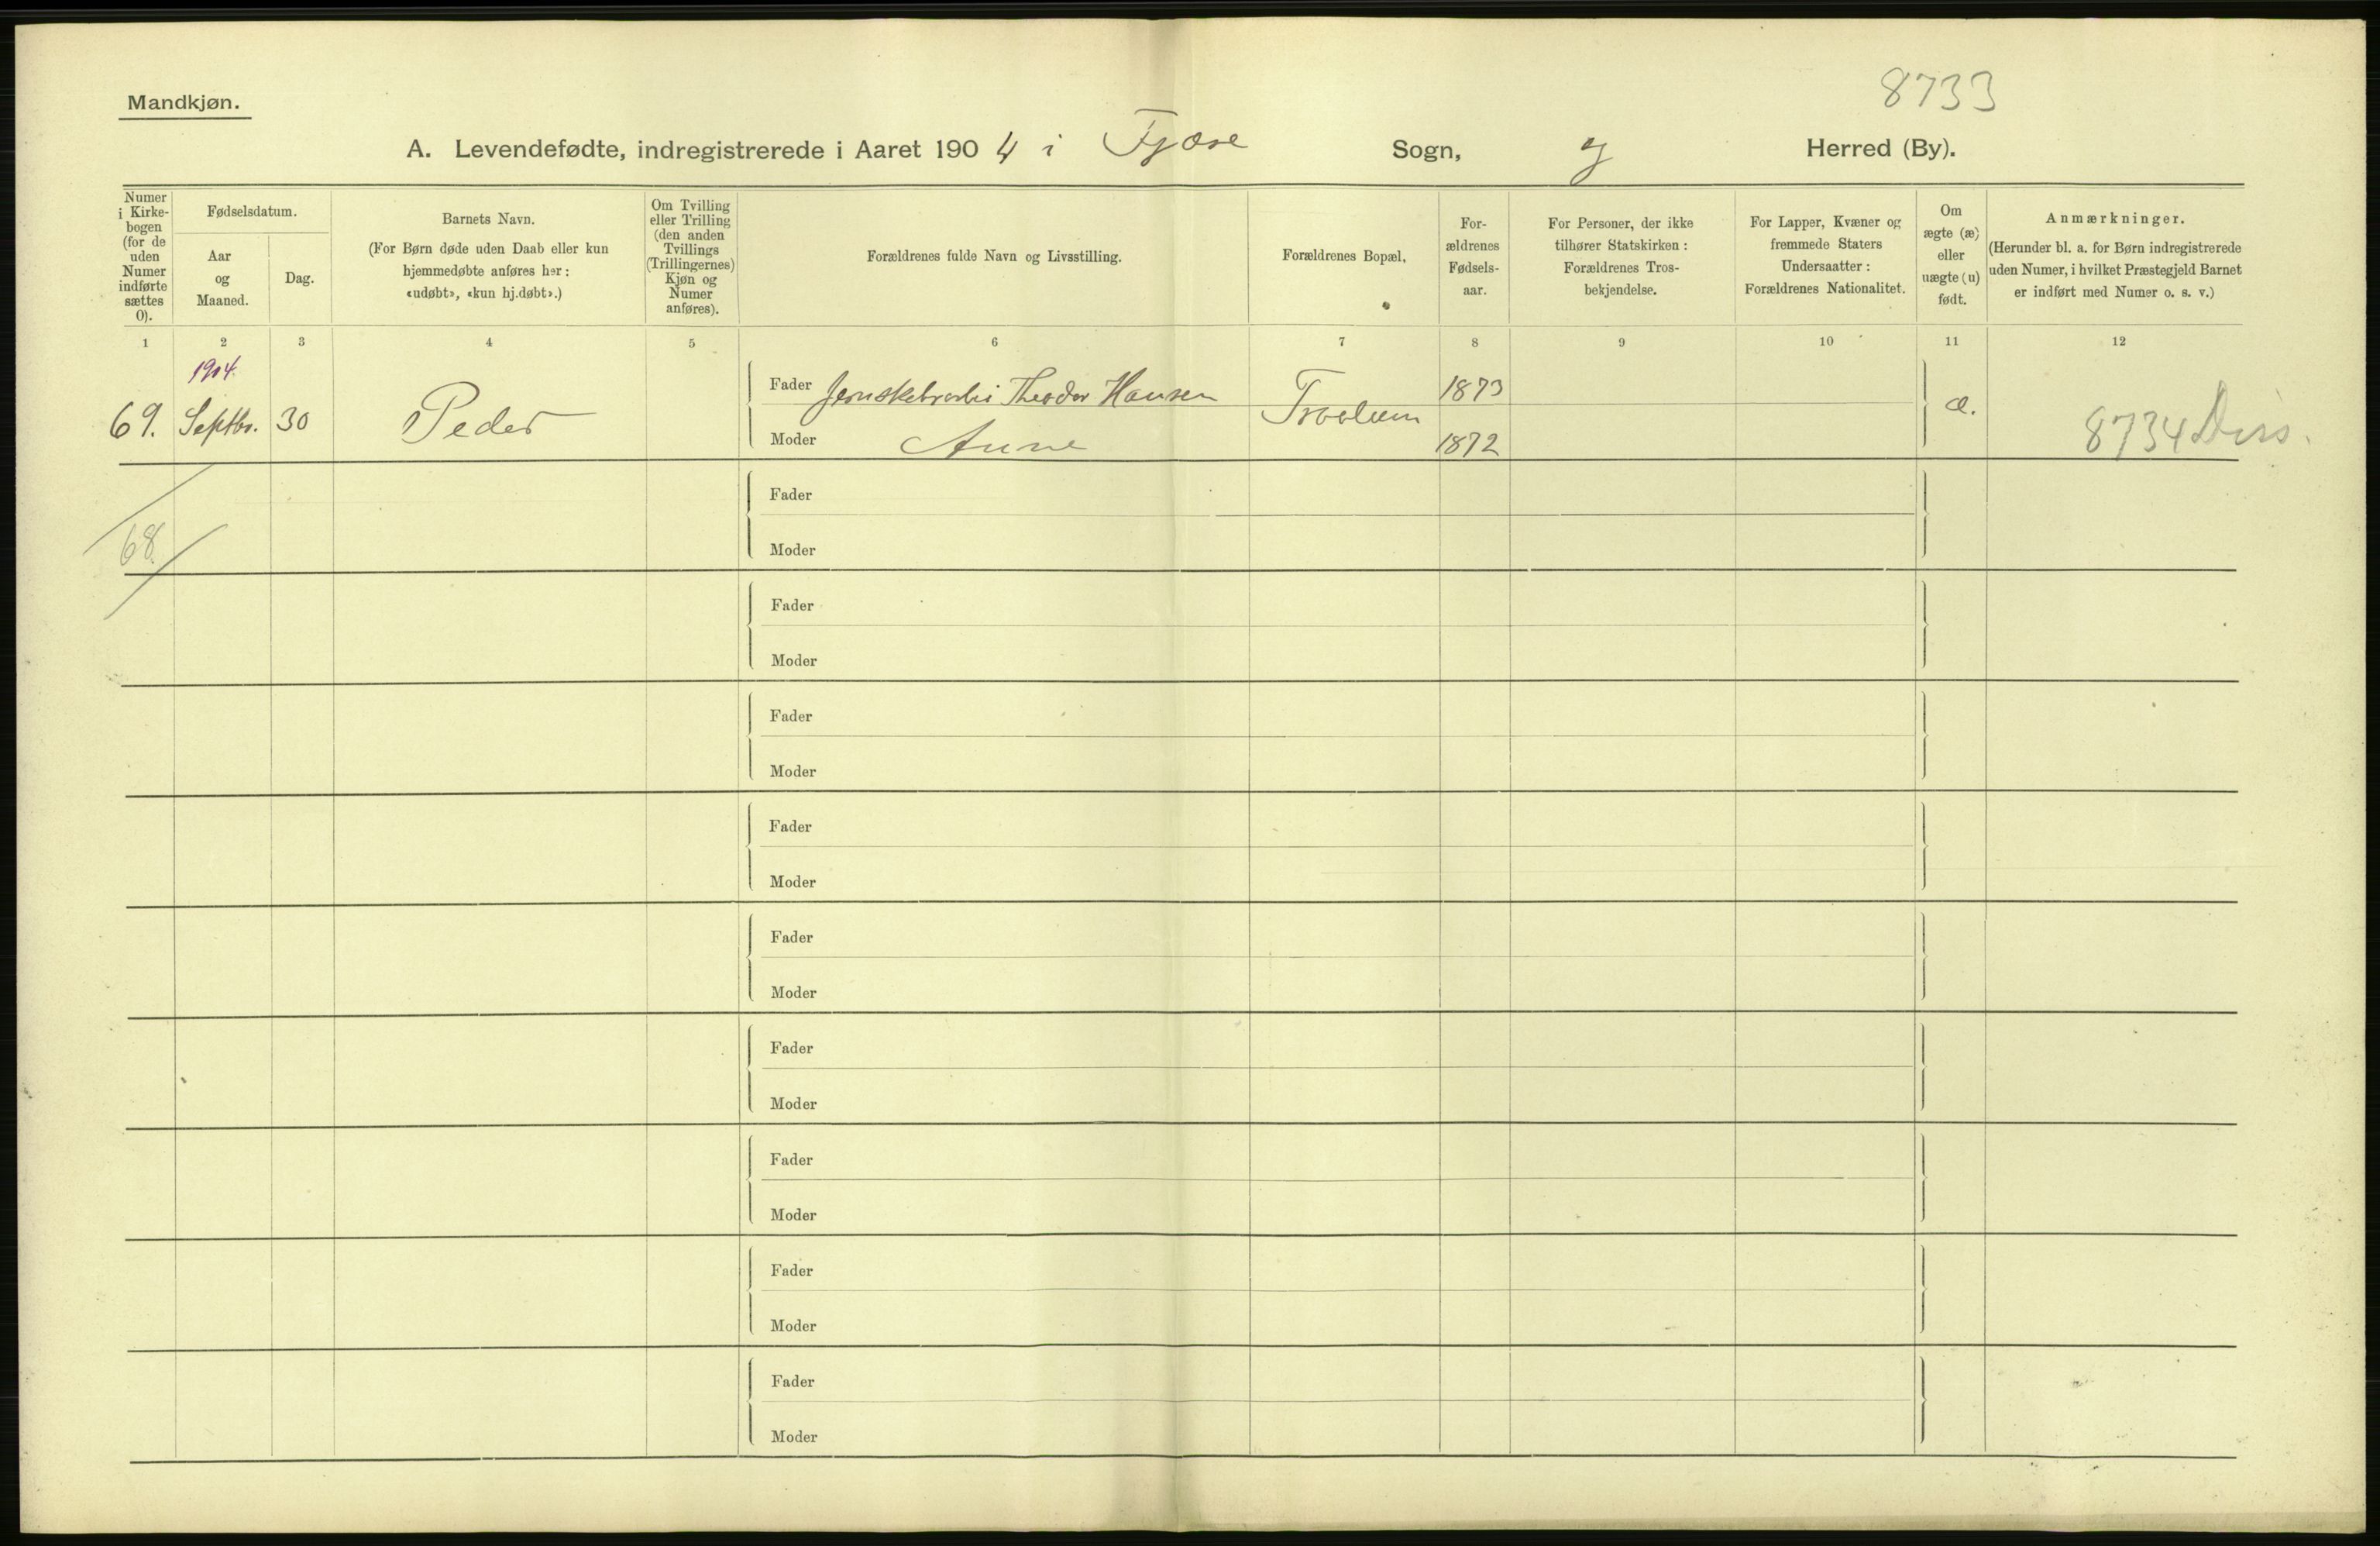 8733
Mandkjøn.
A. Levendefødte, indregistrerede i Aaret 1904 i Tjøse Sogn, og Herred (By).
Numer i Kirke-bogen (for de uden Numer indførte sættes 0).
Fødselsdatum.
Aar og Maaned.
Dag.
Barnets Navn.
(For Børn døde uden Daab eller kun hjemmedøbte anføres her: «udøbt», «kun hj.døbt».)
Om Tvilling eller Trilling (den anden Tvillings (Trillingernes) Kjøn og Numer anføres).
Forældrenes fulde Navn og Livsstilling.
Forældrenes Bopæl,
For-ældrenes Fødsels-aar.
For Personer, der ikke tilhører Statskirken: Forældrenes Tros-bekjendelse.
For Lapper, Kvæner og fremmede Staters Undersaatter: Forældrenes Nationalitet.
Om ægte (æ) eller uægte (u) født.
Anmærkninger.
(Herunder bl. a. for Børn indregistrerede uden Numer, i hvilket Præstegjeld Barnet er indført med Numer o. s. v.)
1 2 3 4 5 6 7 8 9 10 11 12
1904.
Fader Theodor Hansen 1873
69. Septbr. 30 Peder æ.
Moder Anne 1872
8734
Fader
68.
Moder
Fader
Moder
Fader
Moder
Fader
Moder
Fader
Moder
Fader
Moder
Fader
Moder
Fader
Moder
Fader
Moder